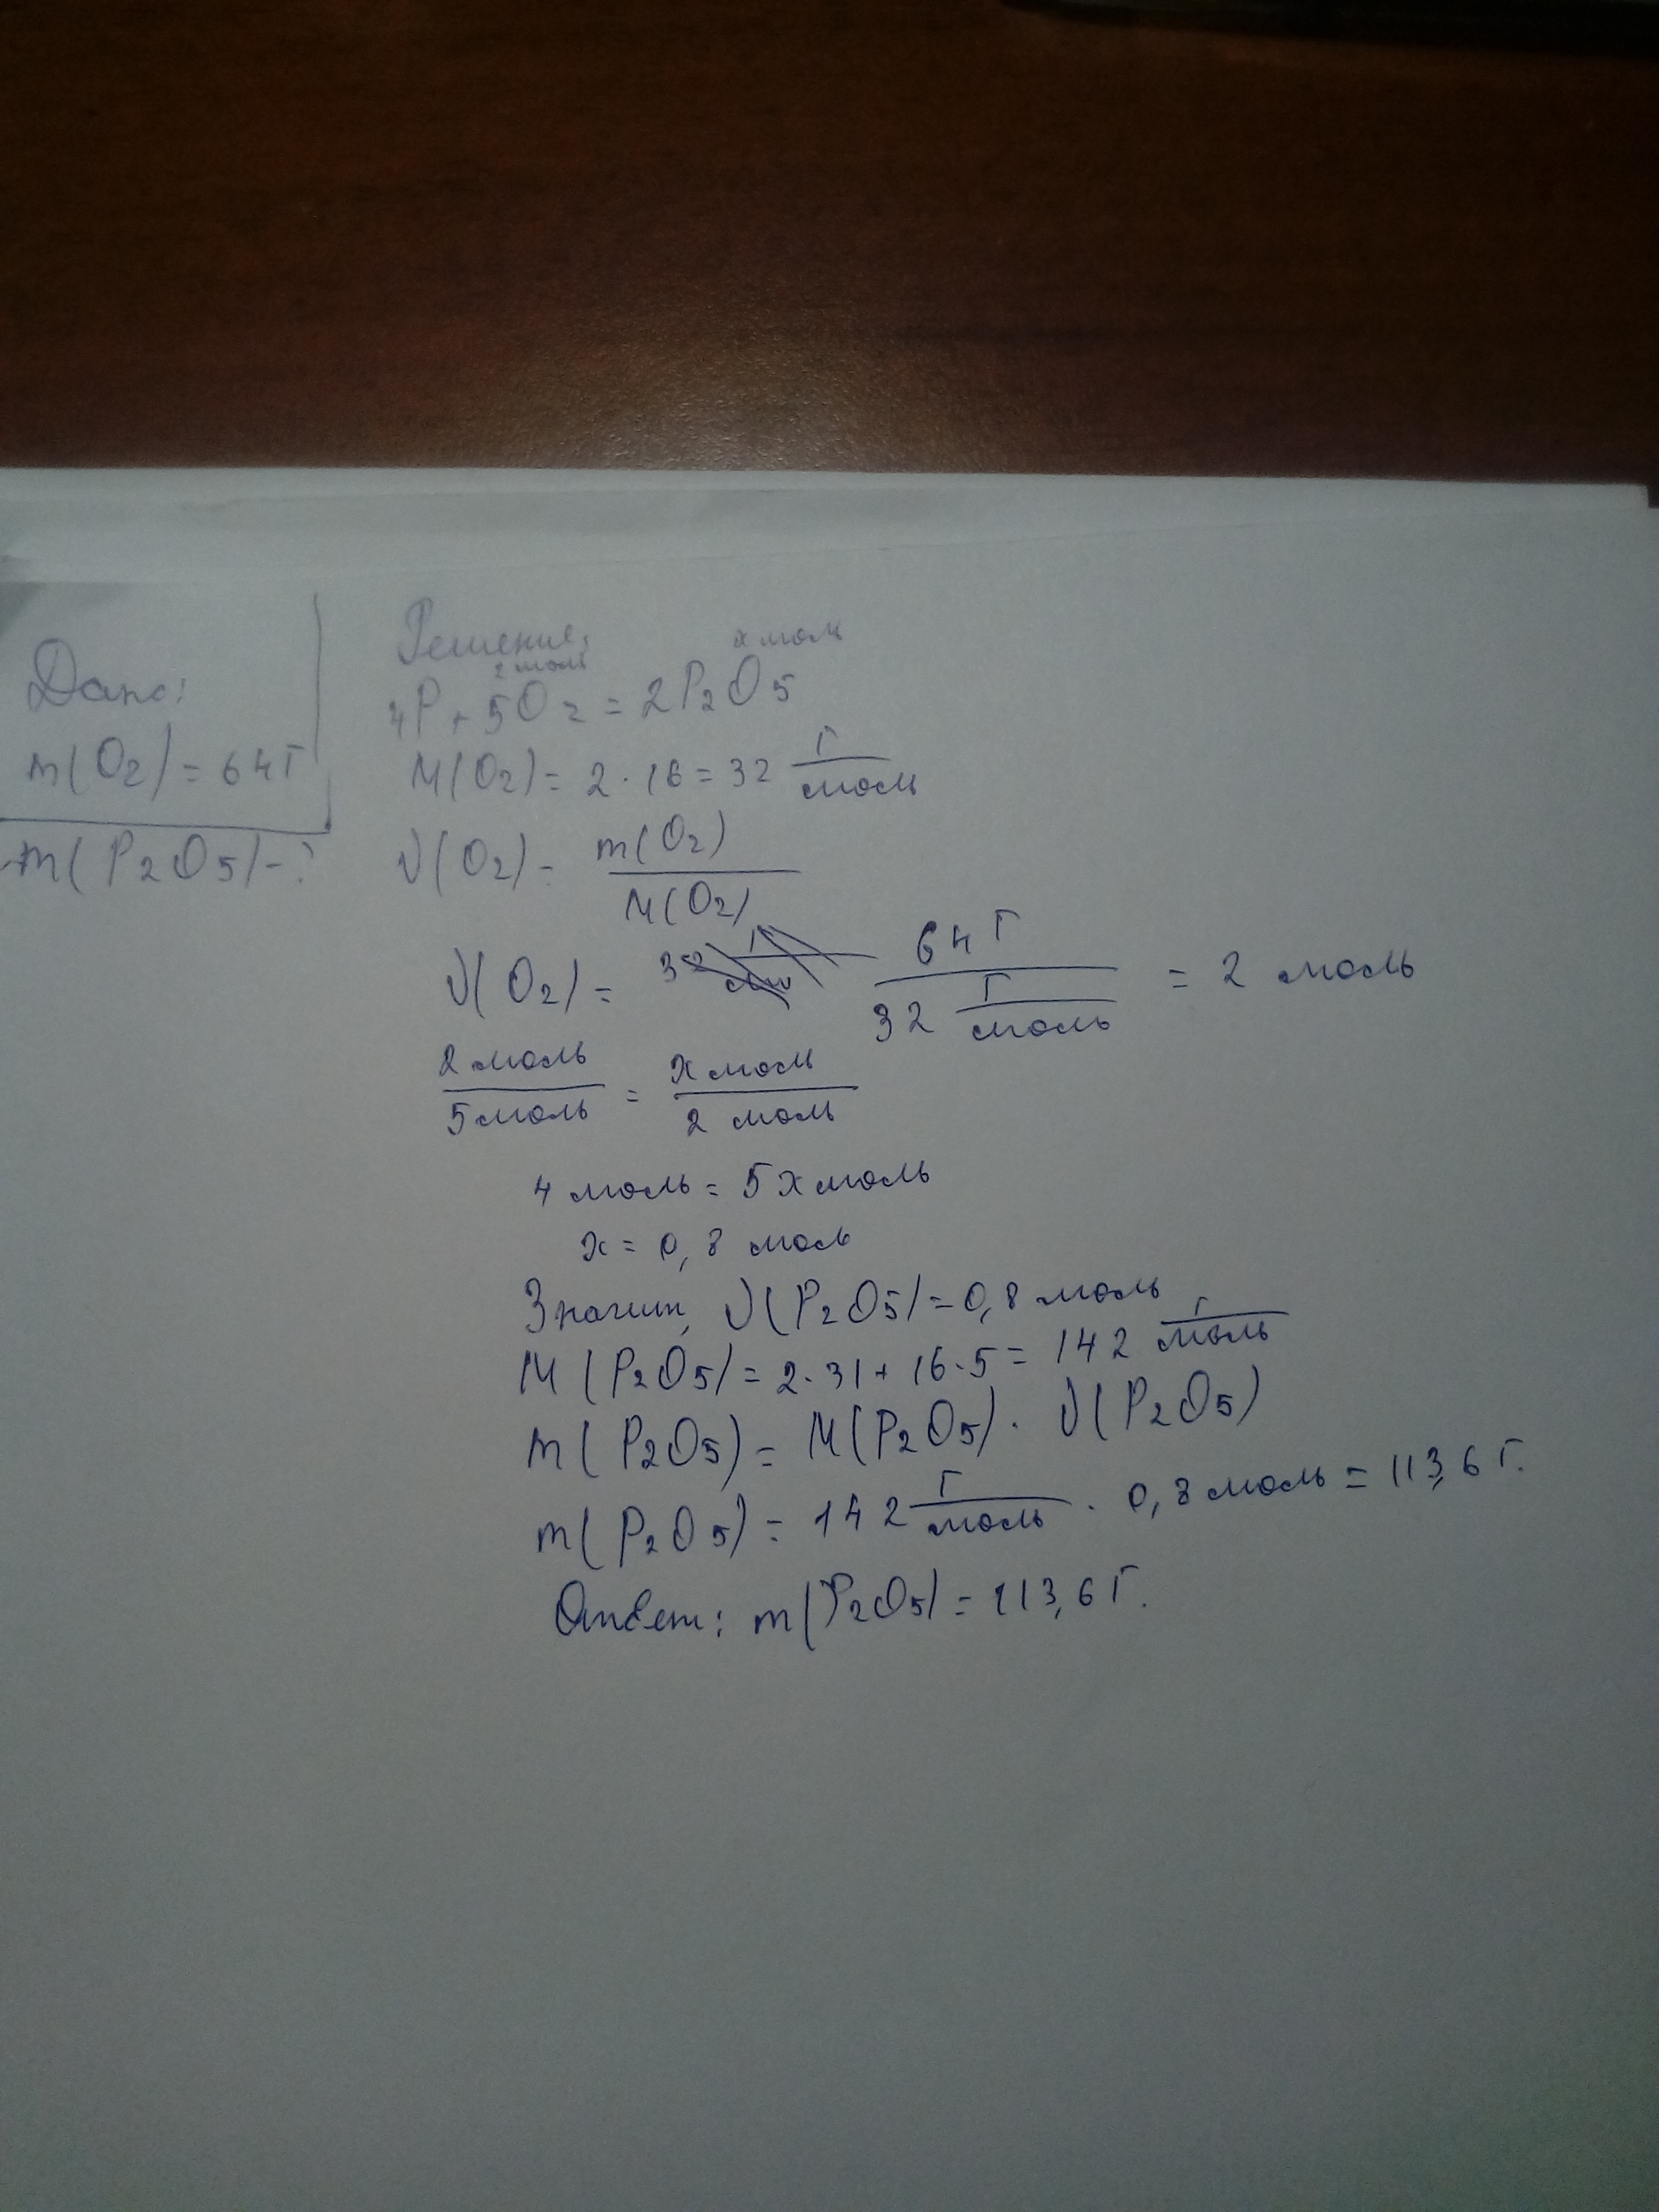 Дано:
m(O2) = 64 г
m(P2O5) - ?
Решение:
2 моль х моль
4P + 5O2 = 2P2O5
M(O2) = 2 · 16 = 32 г/моль
ν(O2) = m(O2)/M(O2)
ν(O2) = 64 г/32 г/моль = 2 моль
2 моль/5 моль = х моль/2 моль
4 моль = 5х моль
х = 0,8 моль
Значит, ν(P2O5) = 0,8 моль
M(P2O5) = 2·31 + 16·5 = 142 г/моль
m(P2O5) = M(P2O5) · ν(P2O5)
m(P2O5) = 142 г/моль · 0,8 моль = 113,6 г.
Ответ: m(P2O5) = 113,6 г.